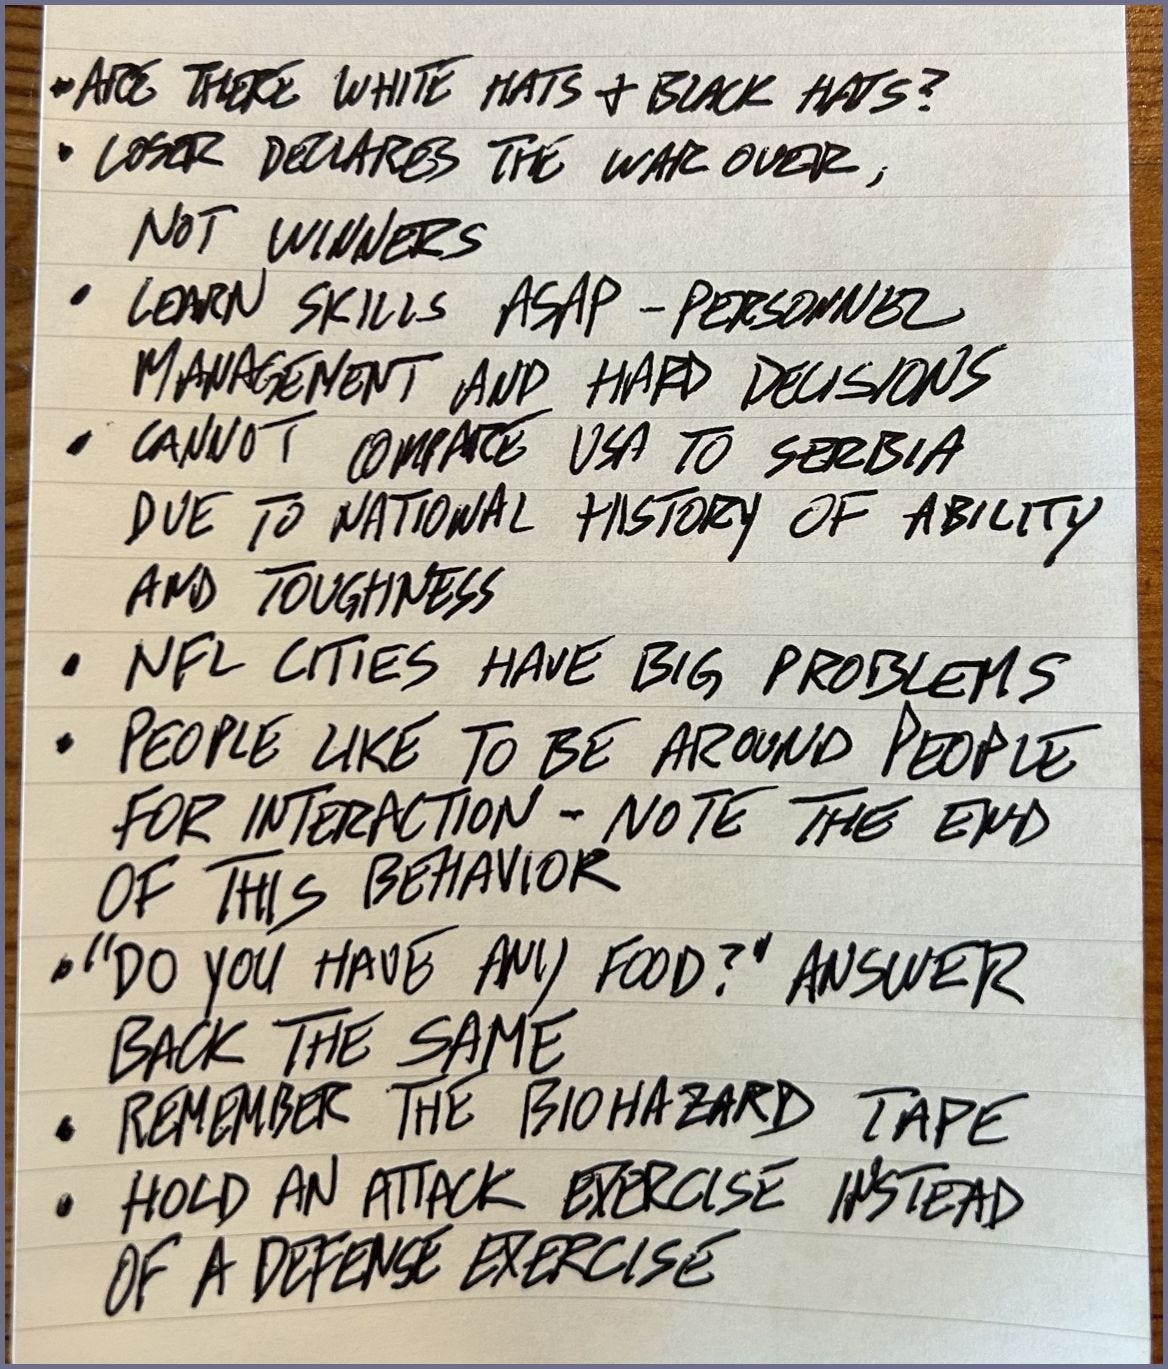 • ARE THERE WHITE HATS & BLACK HATS?
• LOSER DECLARES THE WAR OVER,
NOT WINNERS
• LEARN SKILLS ASAP - PERSONNEL
MANAGEMENT AND HARD DECISIONS
• CANNOT COMPARE USA TO SERBIA
DUE TO NATIONAL HISTORY OF ABILITY
AND TOUGHNESS
• NFL CITIES HAVE BIG PROBLEMS
• PEOPLE LIKE TO BE AROUND PEOPLE
FOR INTERACTION - NOTE THE END
OF THIS BEHAVIOR
• "DO YOU HAVE ANY FOOD?" ANSWER
BACK THE SAME
• REMEMBER THE BIOHAZARD TAPE
• HOLD AN ATTACK EXERCISE INSTEAD
OF A DEFENSE EXERCISE